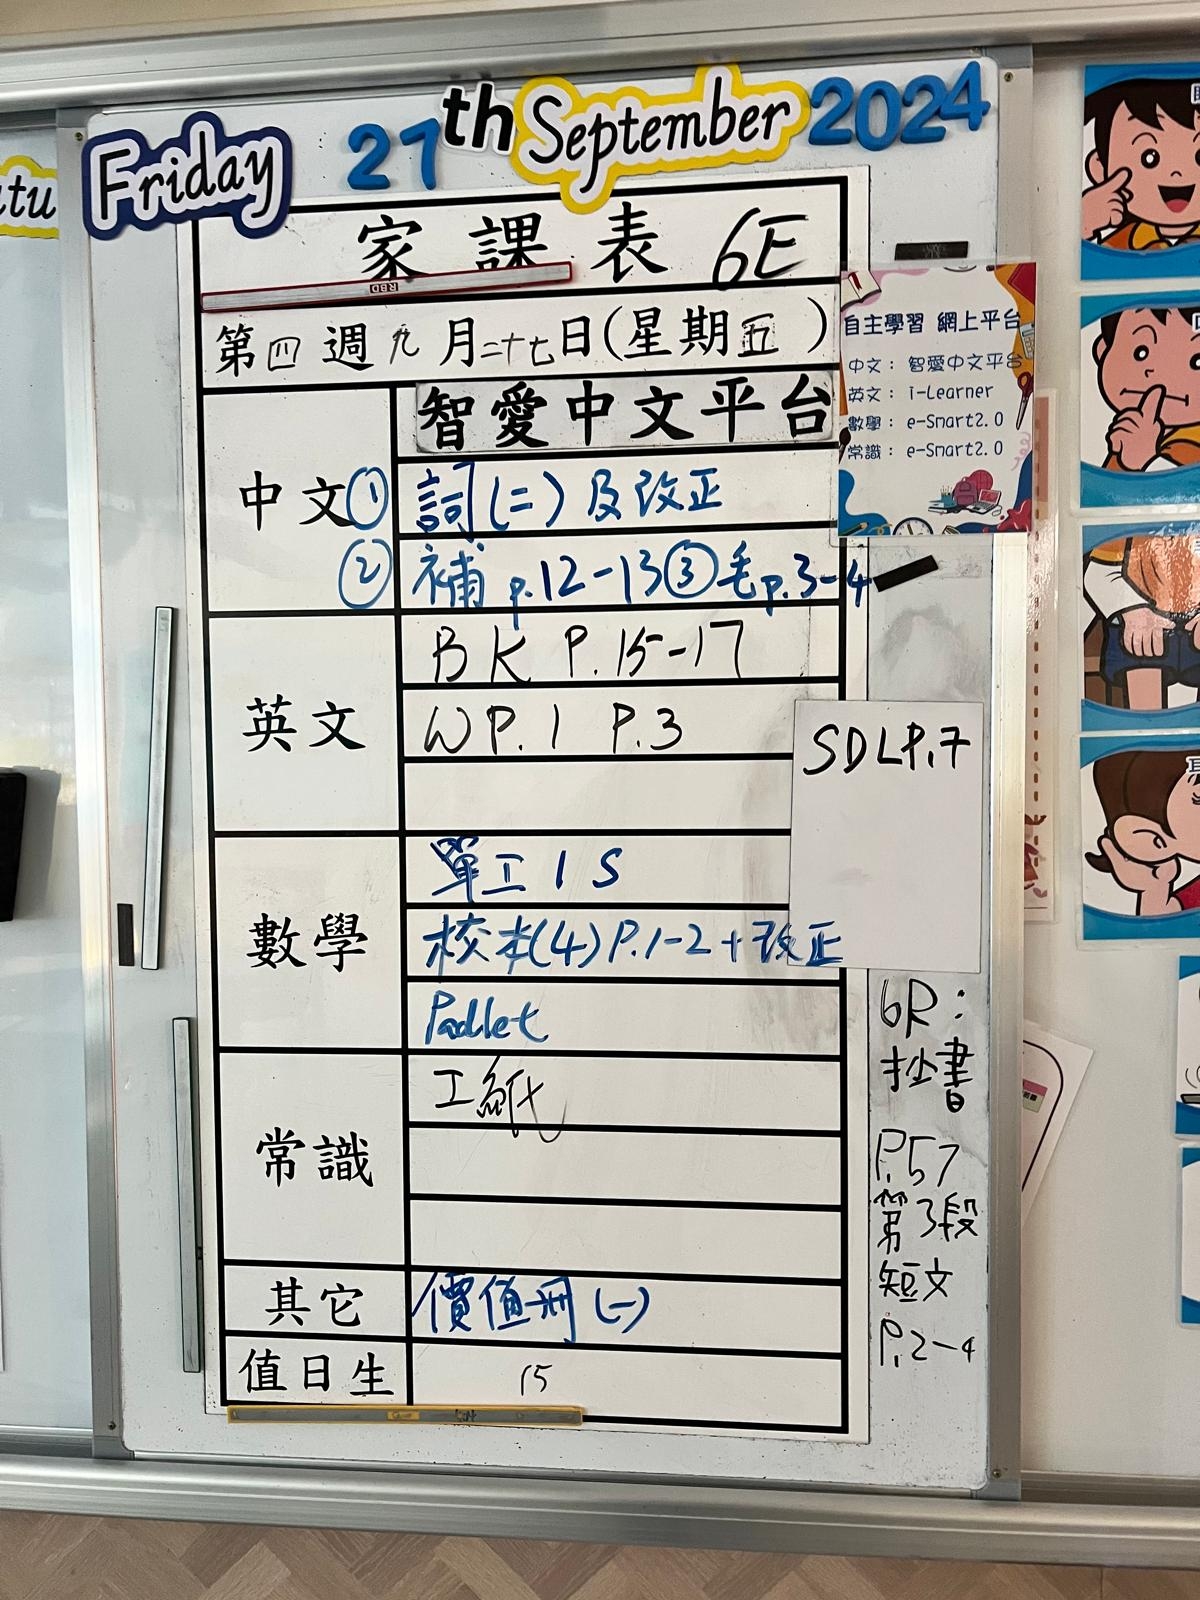 atu
Friday 27th September 2024
家課表 6E
RBD
第四週九月二十七日(星期五)
自主學習 網上平台
中文： 智愛中文平台
英文： i-Learner
數學： e-Smart2.0
常識： e-Smart2.0
智愛中文平台
中文① 詞(二)及改正
② 補 p.12-13③毛p.3-4
英文
BK P.15-17
WP.1 P.3
SDLP.7
數學
單工 1 S
校本(4)P.1-2+改正
Padlet
常識
工紙
其它 價值冊(一)
值日生 15
6R:
抄書
P.57
第3段
短文
P.2-4